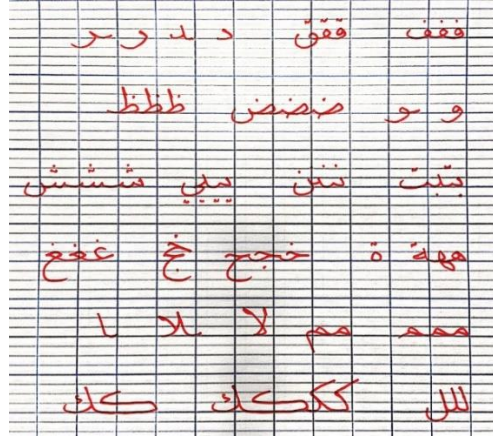 ففف ققق د ـد ر ـر
و ـو ضضض ظظظ
بتبت ننن ييي ششش
ههة ة خجح خج غغغ
ممم مم لا ـلا ـا
لل كككك كك